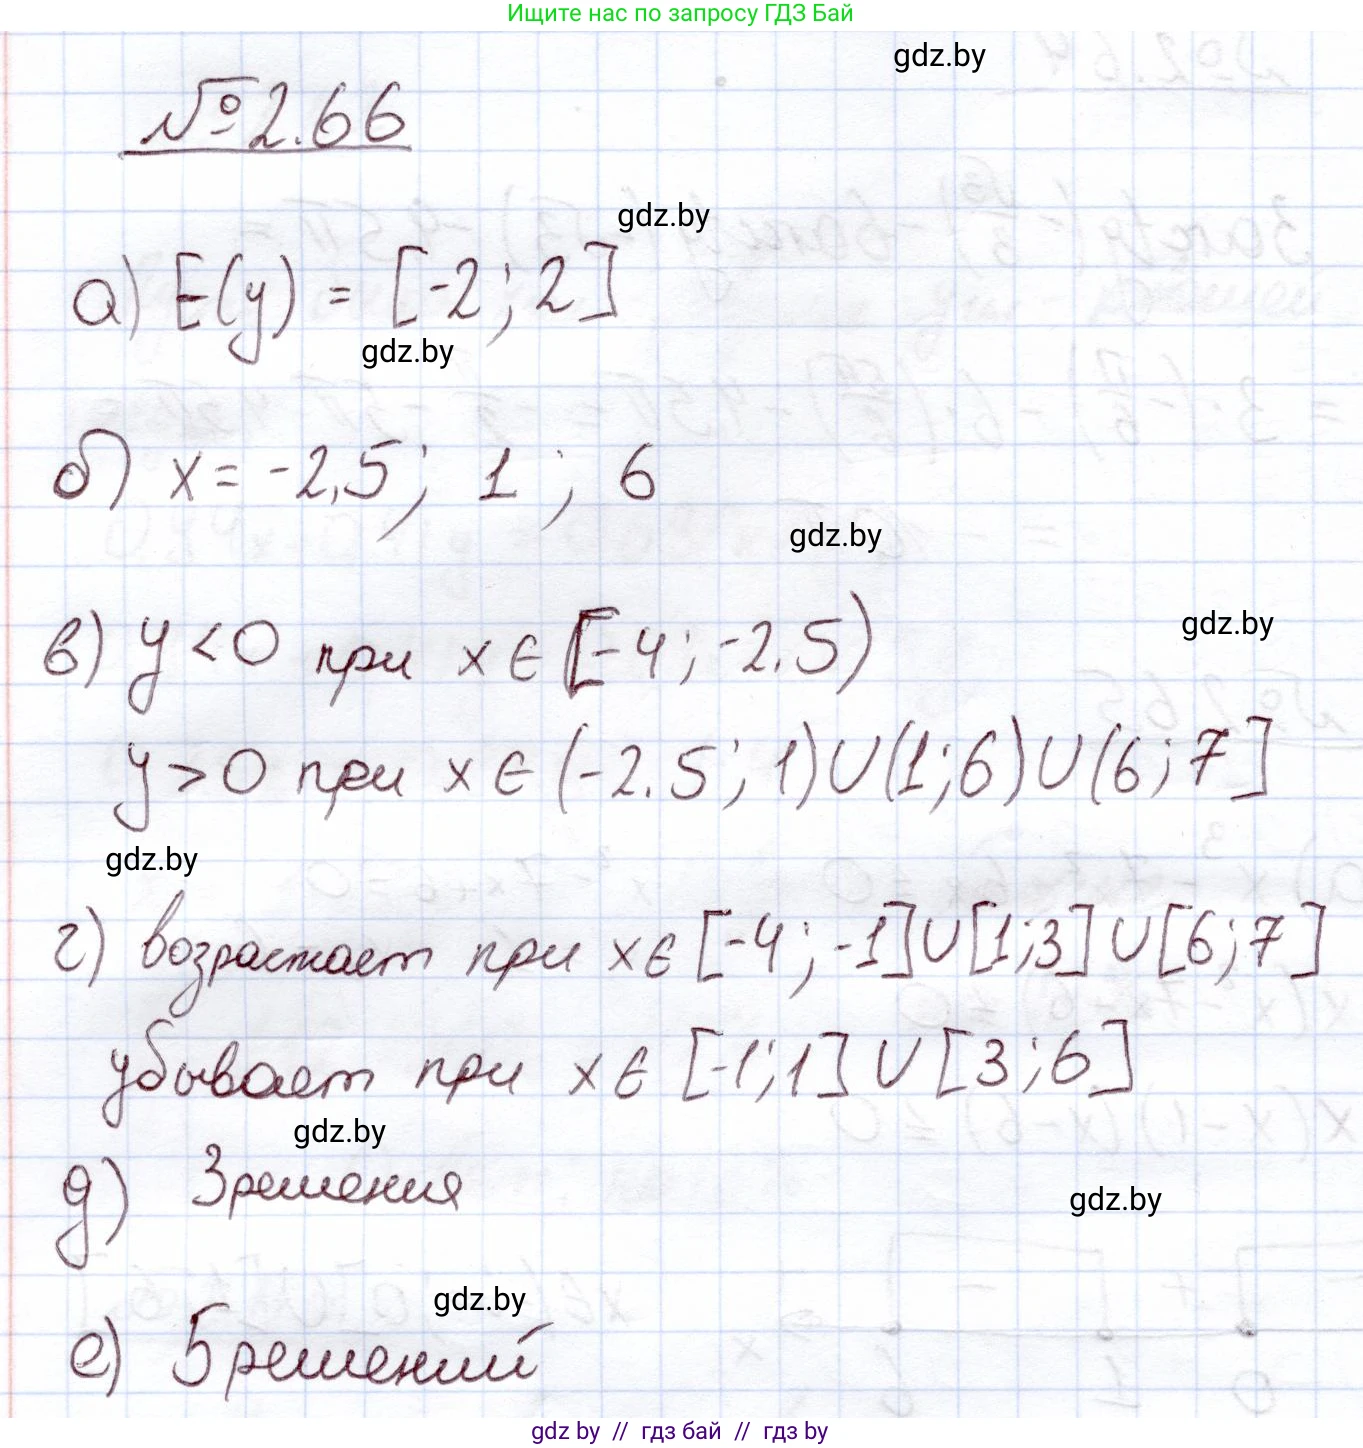 Ищите нас по запросу ГДЗ Бай
gdz.by
№2.66
gdz.by
а) E(y) = [-2; 2]
gdz.by
б) x = -2,5; 1; 6
gdz.by
gdz.by
в) y < 0 при x ∈ [-4; -2.5)
y > 0 при x ∈ (-2.5; 1) ∪ (1; 6) ∪ (6; 7]
gdz.by
г) возрастает при x ∈ [-4; -1] ∪ [1; 3] ∪ [6; 7]
убывает при x ∈ [-1; 1] ∪ [3; 6]
gdz.by
д) 3 решения
gdz.by
gdz.by
е) 5 решений
gdz by // гдз бай // гдз by